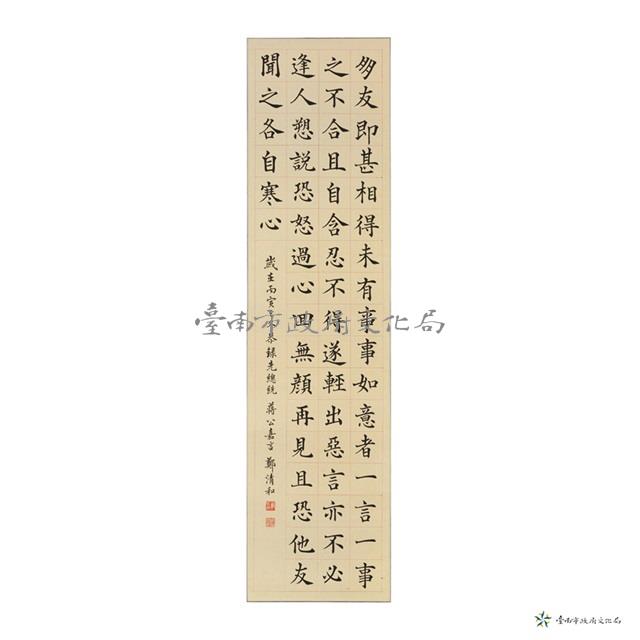 朋友即甚相得未有事事如意者一言一事
之不合且自含忍不得遂輕出惡言亦不必
逢人愬說恐怒過心回無顏再見且恐他友
聞之各自寒心
歲在丙寅恭錄先總統 蔣公嘉言 鄭清和
臺南市政府文化局
臺南市政府文化局